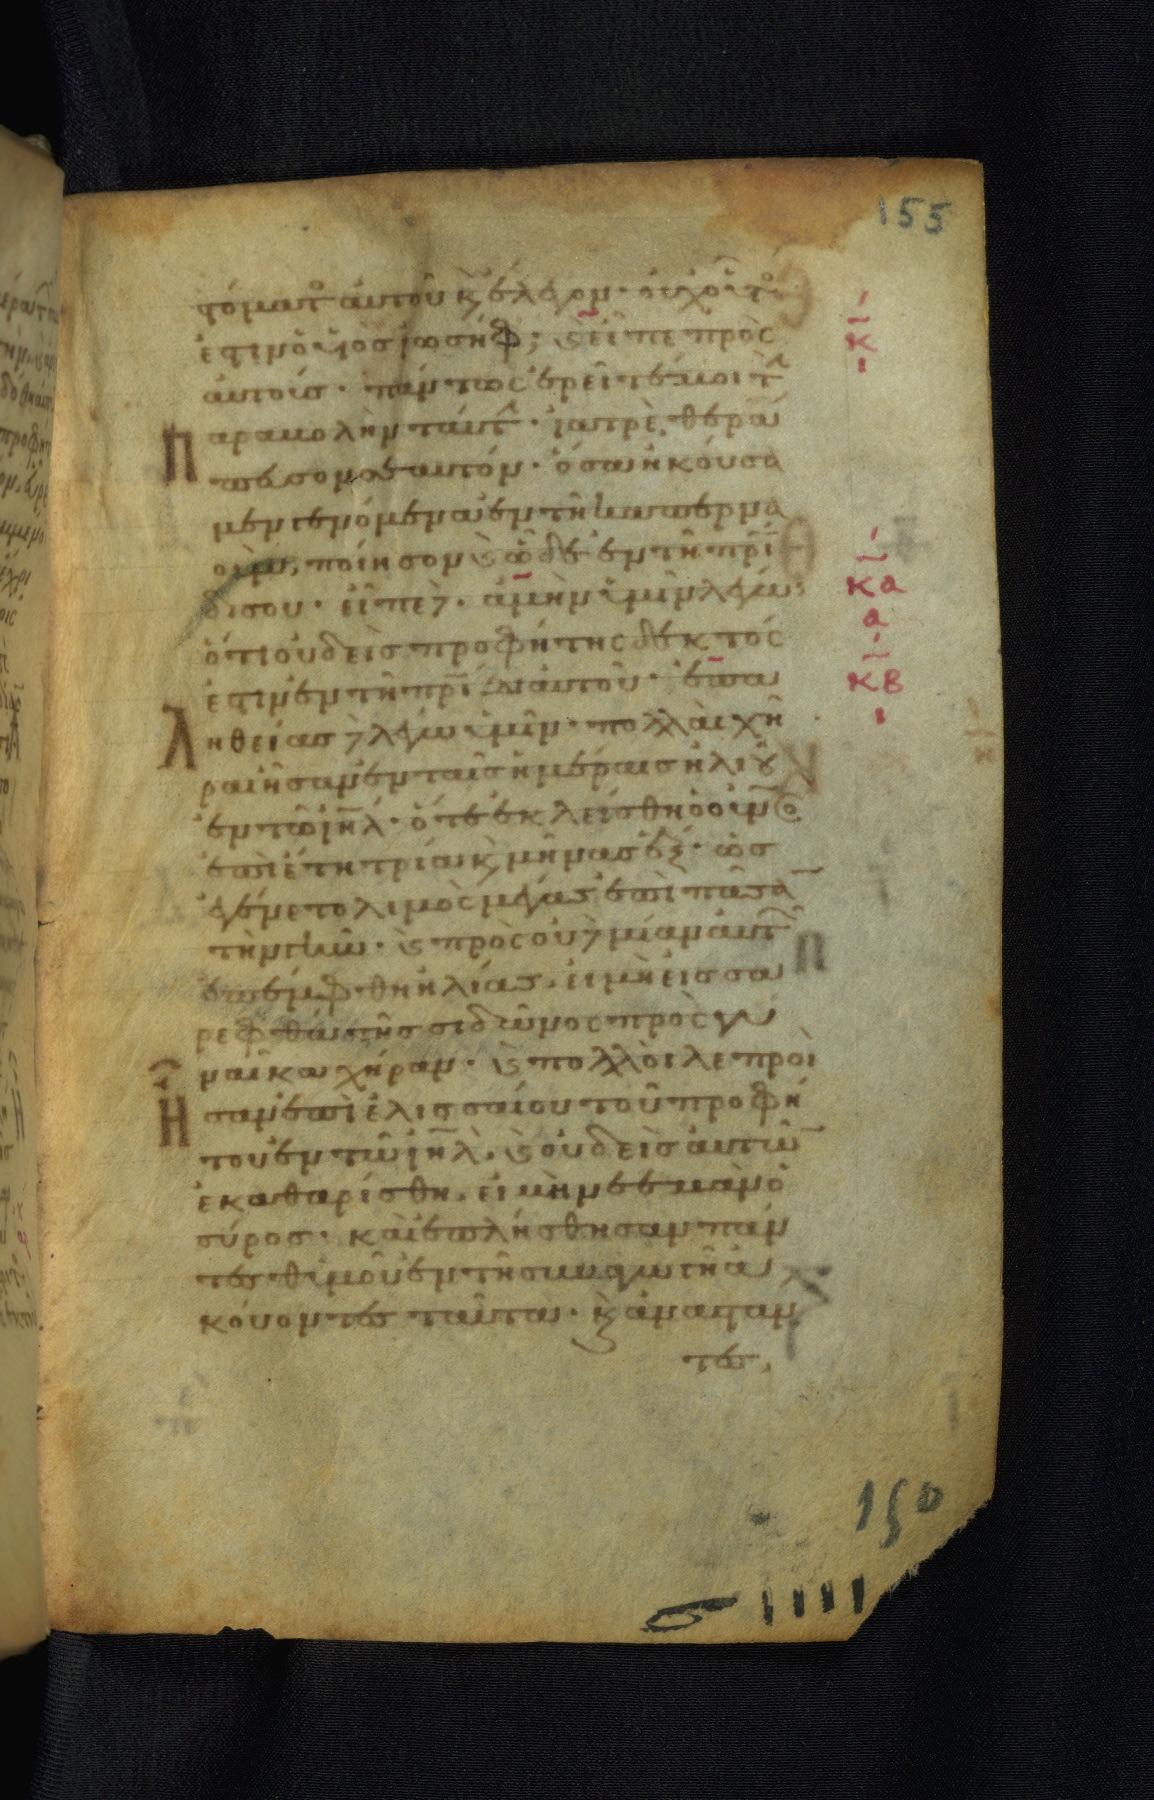 155
τόματο αὐτοῦ κ, ἔλεγον· οὐχ οὗτο
ἐστιν ὁ υἱὸς ἰωσήφ; κ εἶπε πρὸς
αὐτούς· πάντως ἐρεῖτέ μοι τ
Παραβολὴν ταύτ· ἰατρὲ θερά
πευσον σεαυτόν· ὅσα ἠκούσα
μεν γενόμενα ἐν τῆ καπερνα
οὺμ, ποίησον κ ὧδε ἐν τῆ πρι
δι σου· εἶπε δ· ἀμὴν ὑμῖν λέγω
ὅτι οὐδεὶς προφήτης δεκτός
ἐστιν ἐν τῆ πρίδι αὐτοῦ· ἐπα
ληθείας δ λέγω ὑμῖν· πολλαὶ χῆ
ραι ἦσαν ἐν ταῖς ἡμέραις ἠλιοῦ
ἐν τῶ ιηλ· ὅτε ἐκλείσθη ὁ οὐνο
ἐπὶ ἔτη τρία κ, μῆνας ἕξ· ὡς
ἐγένετο λιμὸς μέγας ἐπὶ πᾶσα
τὴν γῆν· κ πρὸς οὐδμίαν αὐτ
ἐπέμφθη ἠλίας. εἰ μὴ εἰς σα
ρεφθὰ τῆς σιδῶνος πρὸς γυ
ναῖκα χήραν· κ πολλοὶ λεπροὶ
Ησαν ἐπὶ ἐλισσαίου τοῦ προφή
του ἐν τῶ ιηλ. κ οὐδεὶς αὐτῶ
ἐκαθαρίσθη. εἰ μὴ νεεμὰν ὁ
σύρος· καὶ ἐπλήσθησαν πάν
τες θυμοῦ ἐν τῆ συναγωγῆ ἀ
κούοντες ταῦτα· κ, ἀναστάν
τες,
κ
ι
κα
α
κβ
ι
150